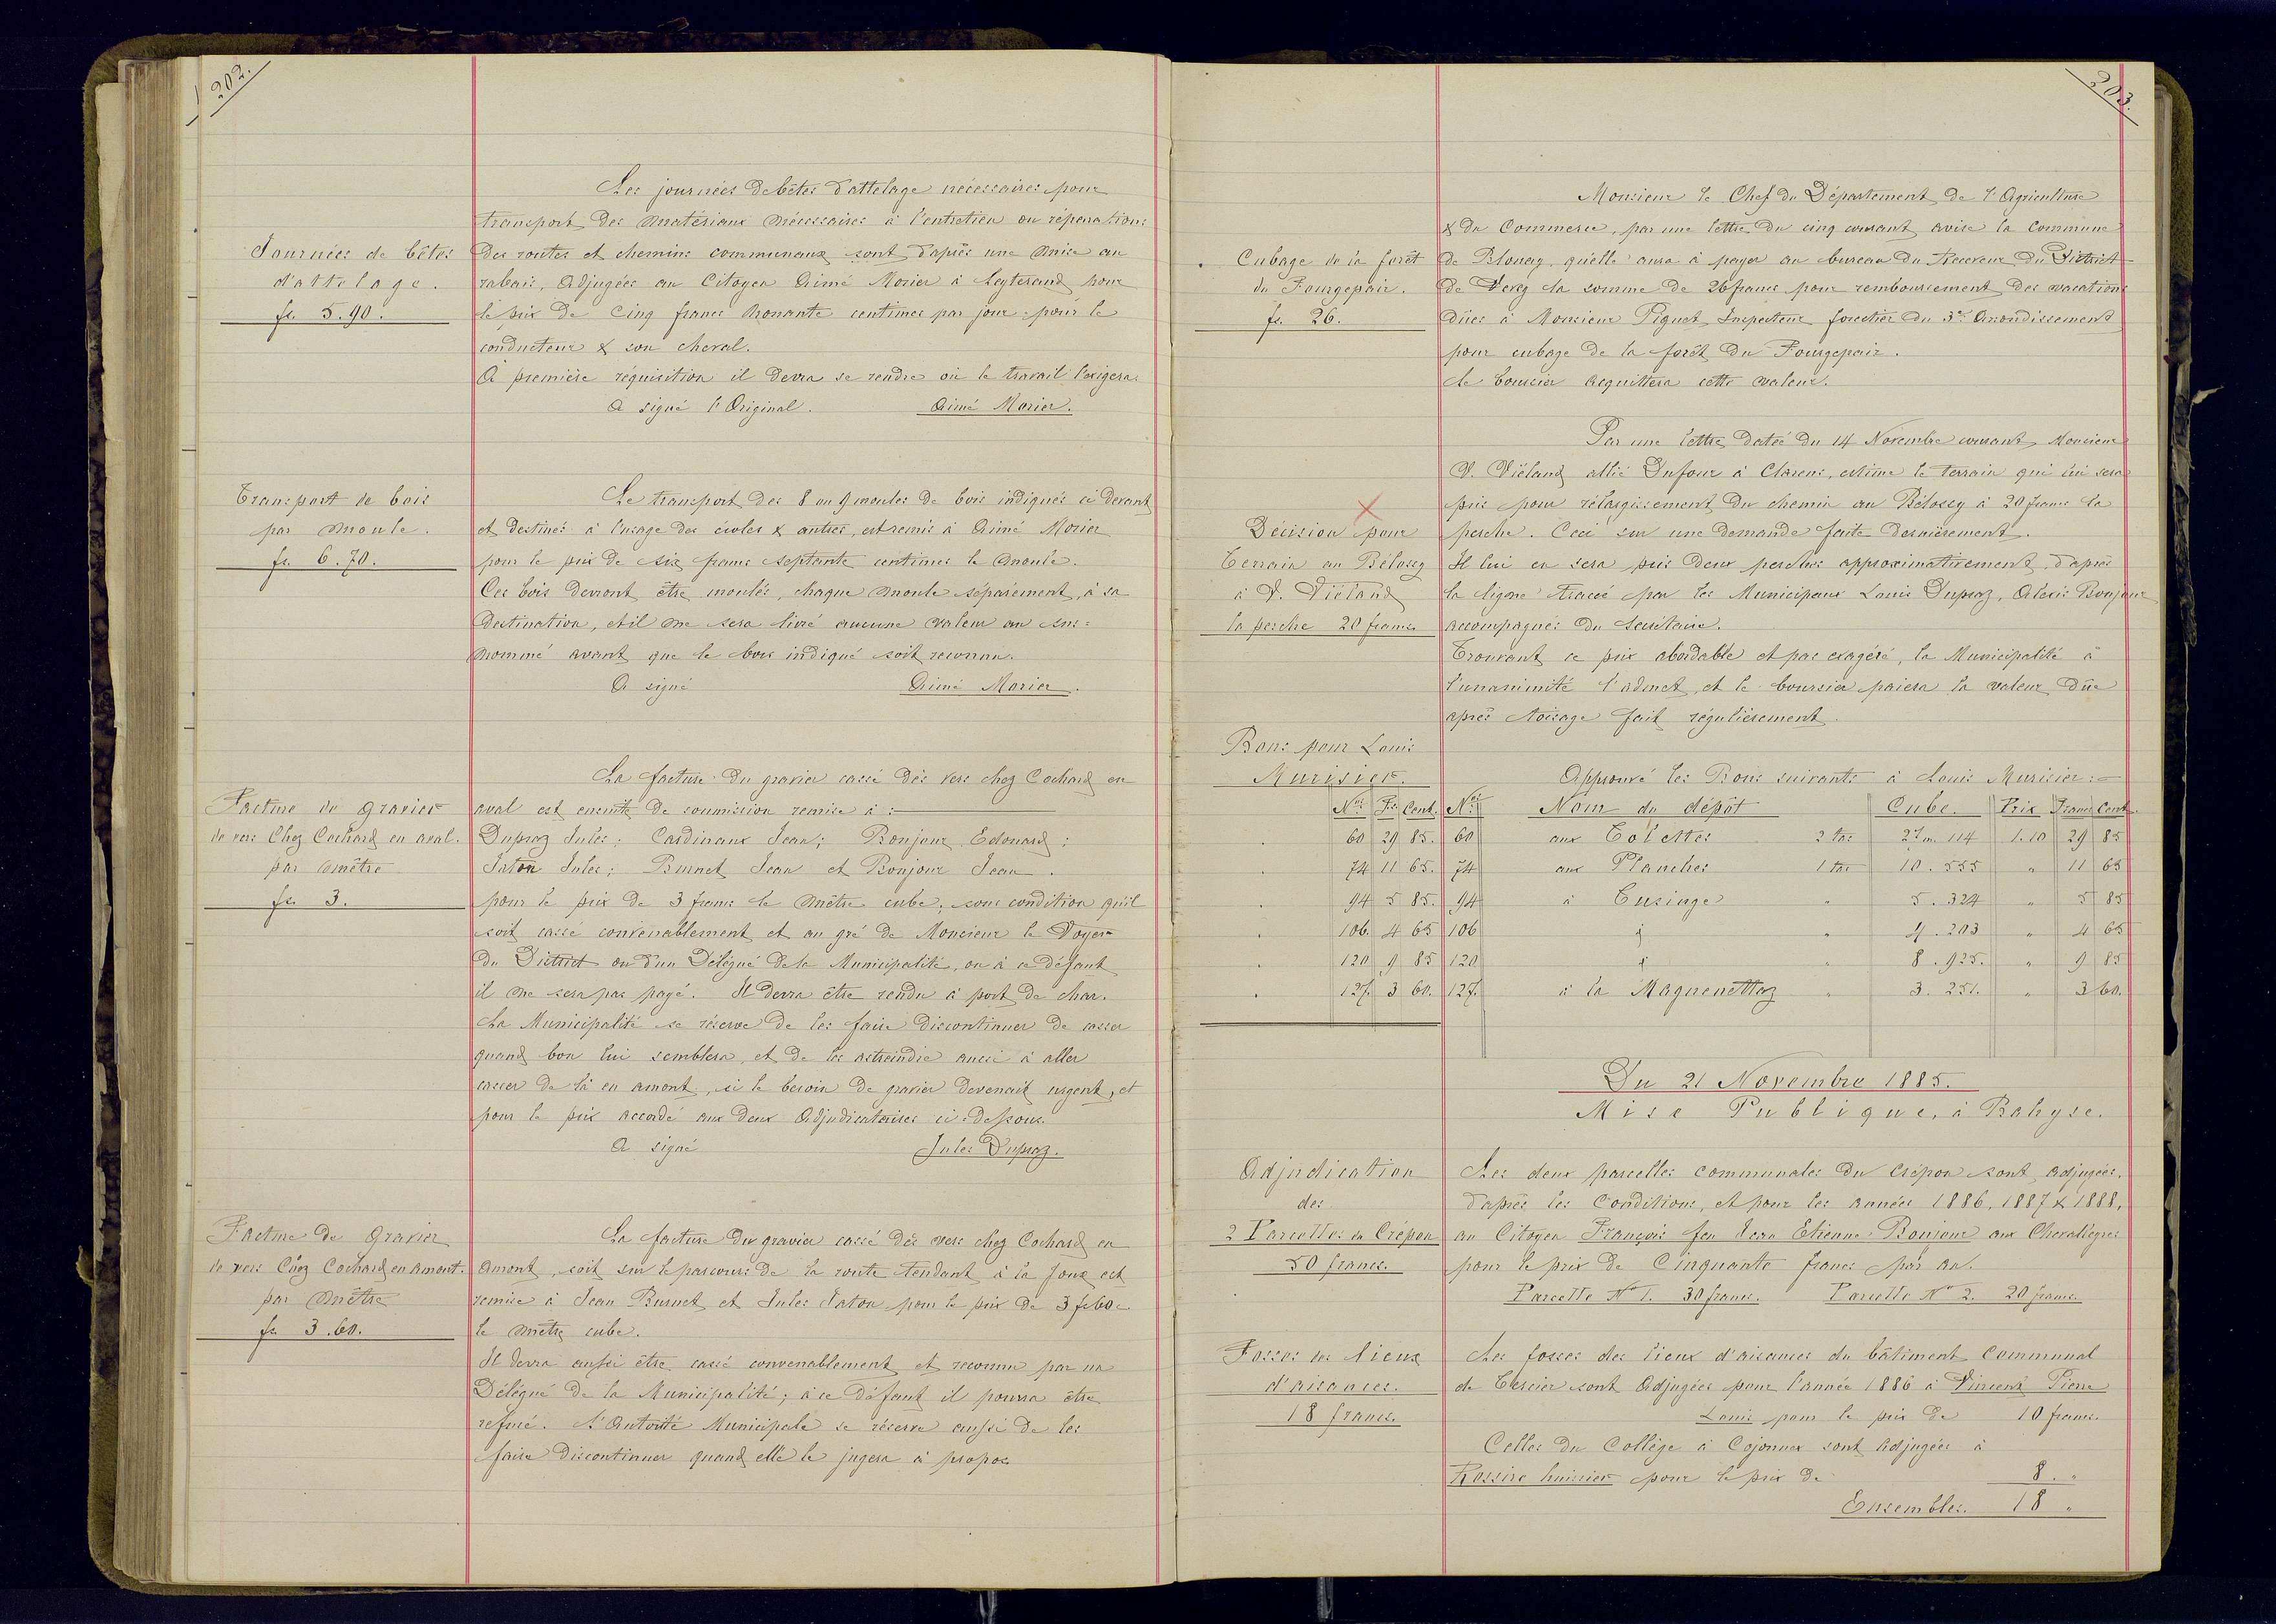 202.
Les journées de bêtes d'attelage nécessaires pour
transport des matériaux nécessaires à l'entretien ou réparations
Journées de bêtes
d'attelage.
fr. 5.90.
des routes et chemins communaux sont d'après une mise au
rabais, adjugées au Citoyen Aimé Morier à Leyterand pour
le prix de Cinq francs nonante centimes par jour pour le
conducteur & son cheval.
A première réquisition il devra se rendre où le travail l'exigera.
A signé l'Original. Aimé Morier.
Transport de bois
par moule.
fr. 6.70.
Le transport des 8 ou 9 moules de bois indiqués ci devant
et destinés à l'usage des écoles & autres, est remis à Aimé Morier
pour le prix de six francs septante centimes le moule.
Ces bois devront être moulés, chaque moule séparément, à sa
destination, et il ne sera livré aucune valeur au sus=
nommé avant que le bois indiqué soit reconnu.
A signé Aimé Morier.
Facture de gravier
de vers Chez Cochard en aval.
par mètre
fr. 3.
La facture du gravier cassé dès vers chez Cochard en
aval est ensuite de soumission remise à :
Dupraz Jules; Cardinaux Jean; Bonjour Edouard;
Jaton Jules; Burnet Jean et Bonjour Jean.
pour le prix de 3 francs le mètre cube; sous condition qu'il
soit cassé convenablement et au gré de Monsieur le Voyer
du District ou d'un Délégué de la Municipalité, ou à ce défaut
il ne sera pas payé. Il devra être rendu à port de char.
La Municipalité se réserve de les faire discontinuer de casser
quand bon lui semblera, et de les astreindre aussi à aller
casser de là en amont, si le besoin de gravier devenait urgent, et
pour le prix accordé aux deux Adjudicataires ci-dessous.
A signé Jules Dupraz.
Facture de Gravier
de vers Chez Cochard en amont.
par mètre
fr. 3.60.
La facture du gravier cassé dès vers chez Cochard en
amont, soit sur le parcours de la route tendant à la Joux est
remise à Jean Burnet et Jules Jaton pour le prix de 3 fr 60 c
le mètre cube.
Il devra aussi être cassé convenablement et reconnu par un
Délégué de la Municipalité; à ce défaut il pourra être
refusé. L'Autorité Municipale se réserve aussi de les
faire discontinuer quand elle le jugera à propos
203.
Monsieur le Chef du Département de l'Agriculture
& du Commerce, par une lettre du cinq courant avise la Commune
Cubage de la forêt
du Fourgepair.
fr. 26.
de Blonay qu'elle aura à payer au bureau du Receveur du District
de Vevey la somme de 26 francs pour remboursement des vacations
dûes à Monsieur Piguet Inspecteur forestier du 3e Arrondissement
pour cubage de la forêt du Fourgepair.
Le boursier acquittera cette valeur.
Par une lettre datée du 14 Novembre courant Monsieur
V. Viéland allié Dufour à Clarens, estime le terrain qui lui sera
pris pour rélargissement du chemin au Bélossy à 20 francs la
Décision pour
Terrain au Bélossy
à V. Viéland
la perche 20 francs
perche. Ceci sur une demande faite dernièrement.
Il lui en sera pris deux perches approximativement, d'après
la ligne tracée par les Municipaux Louis Dupraz, Alexis Bonjour
accompagnés du Secrétaire.
Trouvant ce prix abordable et pas exagéré, la Municipalité à
l'unanimité l'admet, et le boursier paiera la valeur dûe
après toisage fait régulièrement.
Bons pour Louis
Murisier.
Approuvé les Bons suivants à Louis Murisier :
Nos Frs Cent. Nos Nom du dépôt Cube. Prix Francs Cent
60 29 85. 60 aux Tolettes 2 tas 27 m. 114 1.10 29 85
74 11 65. 74 aux Planches 1 tas 10 . 555 " 11 65
94 5 85. 94 à Cusinge " 5 . 324 " 5 85
106 4 65 106 " 4 . 203 " 4 65
120 9 85 120 " 8 . 925. " 9 85
127. 3 60. 127. à la Maguenettaz " 3 . 251. " 3 60.
Du 21 Novembre 1885.
Mise Publique, à Bahyse.
Adjudication
des
2 Parcelles en Crépon
50 francs.
Les deux parcelles communales du Crépon sont adjugées.
d'après les Conditions, et pour les années 1886, 1887 & 1888,
au Citoyen François feu Jean Etienne Bonjour aux Chevalleyres
pour le prix de Cinquante francs par an.
Parcelle No 1. 30 francs. Parcelle No 2. 20 francs.
Fosses des lieux
d'aisances.
18 francs.
Les fosses des lieux d'aisances du bâtiment Communal
de Tercier sont Adjugées pour l'année 1886 à Vincent Pierre
Louis pour le prix de 10 francs.
Celles du Collège à Cojonnex sont Adjugées à
Rossire huissier pour le prix de 8. "
Ensembles. 18 "